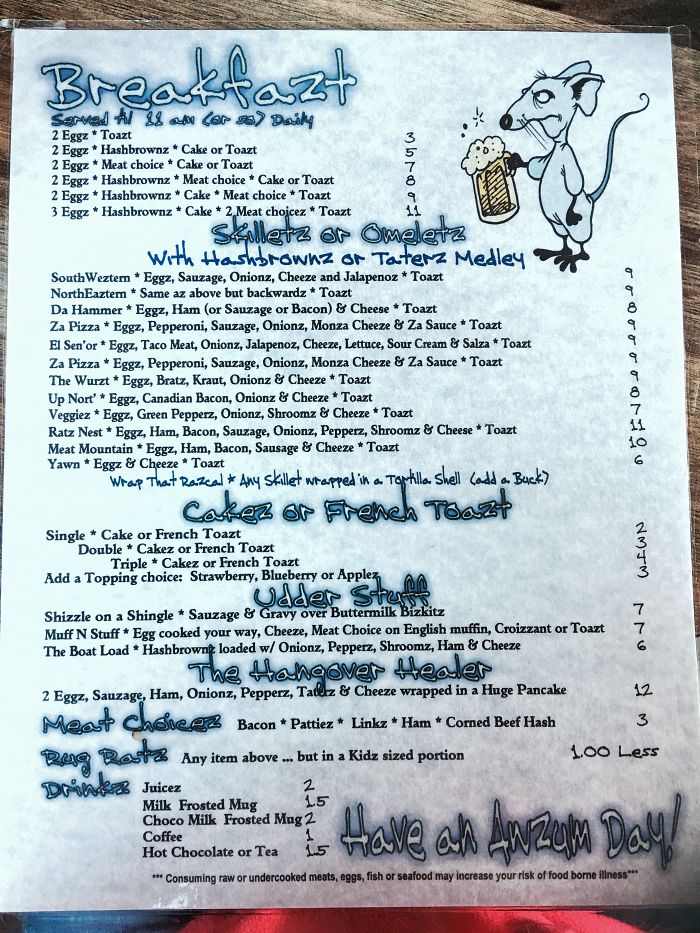 Breakfazt
Served til 11 am (or so) Daily
2 Eggz * Toazt 3
2 Eggz * Hashbrownz * Cake or Toazt 5
2 Eggz * Meat choice * Cake or Toazt 7
2 Eggz * Hashbrownz * Meat choice * Cake or Toazt 8
2 Eggz * Hashbrownz * Cake * Meat choice * Toazt 9
3 Eggz * Hashbrownz * Cake * 2 Meat choicez * Toazt 11
Skilletz or Omeletz
With Hashbrownz or Taterz Medley
SouthWeztern * Eggz, Sauzage, Onionz, Cheeze and Jalapenoz * Toazt 9
NorthEaztern * Same az above but backwardz * Toazt 9
Da Hammer * Eggz, Ham (or Sauzage or Bacon) & Cheese * Toazt 8
Za Pizza * Eggz, Pepperoni, Sauzage, Onionz, Monza Cheeze & Za Sauce * Toazt 9
El Sen'or * Eggz, Taco Meat, Onionz, Jalapenoz, Cheeze, Lettuce, Sour Cream & Salza * Toazt 9
Za Pizza * Eggz, Pepperoni, Sauzage, Onionz, Monza Cheeze & Za Sauce * Toazt 9
The Wurzt * Eggz, Bratz, Kraut, Onionz & Cheeze * Toazt 9
Up Nort' * Eggz, Canadian Bacon, Onionz & Cheeze * Toazt 8
Veggiez * Eggz, Green Pepperz, Onionz, Shroomz & Cheeze * Toazt 7
Ratz Nest * Eggz, Ham, Bacon, Sauzage, Onionz, Pepperz, Shroomz & Cheese * Toazt 11
Meat Mountain * Eggz, Ham, Bacon, Sausage & Cheeze * Toazt 10
Yawn * Eggz & Cheeze * Toazt 6
Wrap That Razcal * Any Skillet wrapped in a Tortilla Shell (add a Buck)
Cakez or French Toazt
Single * Cake or French Toazt 2
Double * Cakez or French Toazt 3
Triple * Cakez or French Toazt 4
Add a Topping choice: Strawberry, Blueberry or Applez 3
Udder Stuff
Shizzle on a Shingle * Sauzage & Gravy over Buttermilk Bizkitz 7
Muff N Stuff * Egg cooked your way, Cheeze, Meat Choice on English muffin, Croizzant or Toazt 7
The Boat Load * Hashbrownz loaded w/ Onionz, Pepperz, Shroomz, Ham & Cheeze 6
The Hangover Healer
2 Eggz, Sauzage, Ham, Onionz, Pepperz, Taterz & Cheeze wrapped in a Huge Pancake 12
Meat Choicez Bacon * Pattiez * Linkz * Ham * Corned Beef Hash 3
Rug Ratz Any item above ... but in a Kidz sized portion 1.00 Less
Drinkz Juicez 2
Milk Frosted Mug 1.5
Choco Milk Frosted Mug 2
Coffee 1
Hot Chocolate or Tea 1.5
Have an Awzum Day!
*** Consuming raw or undercooked meats, eggs, fish or seafood may increase your risk of food borne illness***